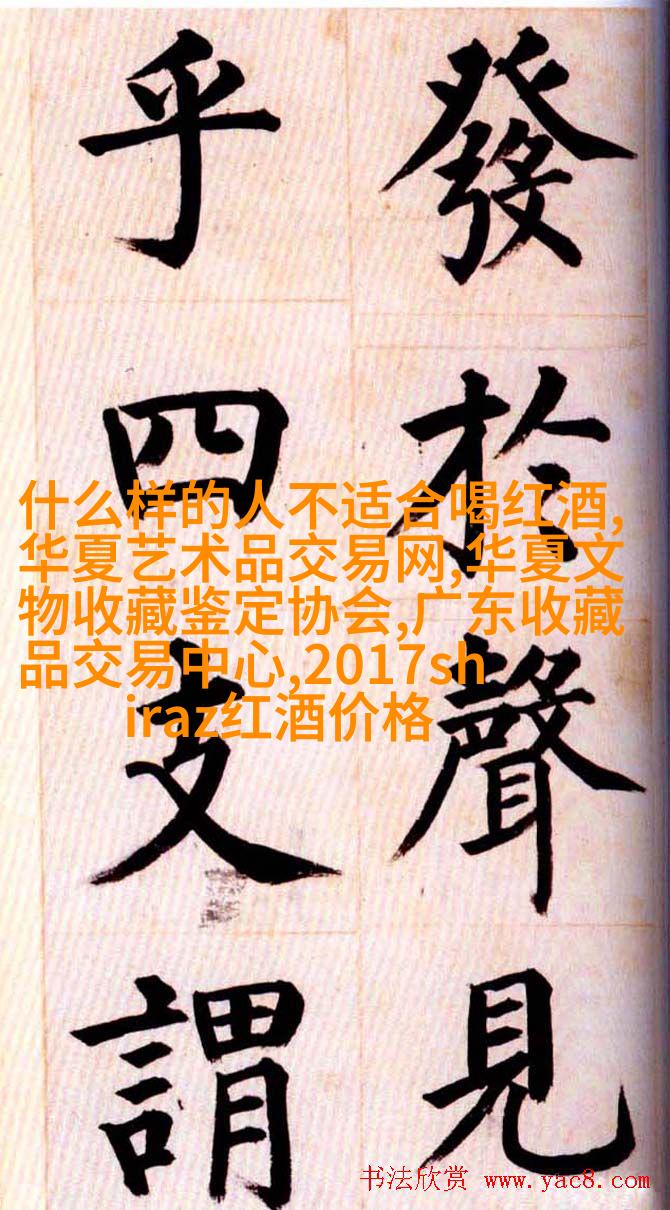 發於聲見
乎四支謂
什么样的人不适合喝红酒,
华夏艺术品交易网,华夏文
物收藏鉴定协会,广东收藏
品交易中心,2017sh
iraz红酒价格
书法欣赏 www.yac8.com